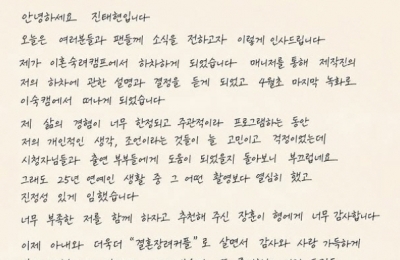 안녕하세요 진태현입니다
오늘은 여러분들과 팬들께 소식을 전하고자 이렇게 인사드립니다
제가 이혼숙려캠프에서 하차하게 되었습니다 매니저를 통해 제작진의
저의 하차에 관한 설명과 결정을 듣게 되었고 4월초 마지막 녹화로
이숙캠에서 떠나게 되었습니다
제 삶의 경험이 너무 한정되고 주관적이라 프로그램하는 동안
저의 개인적인 생각, 조언이라는 것들이 늘 고민이고 걱정이었는데
시청자님들과 출연 부부들에게 도움이 되었을지 돌아보니 부끄럽네요
그래도 25년 연예인 생활 중 그 어떤 촬영보다 열심히 했고
진정성 있게 임했습니다
너무 부족한 저를 함께 하자고 추천해 주신 장훈이 형에게 너무 감사합니다
이제 아내와 더욱더 "결혼장려커플"로 살면서 감사와 사랑 가득하게